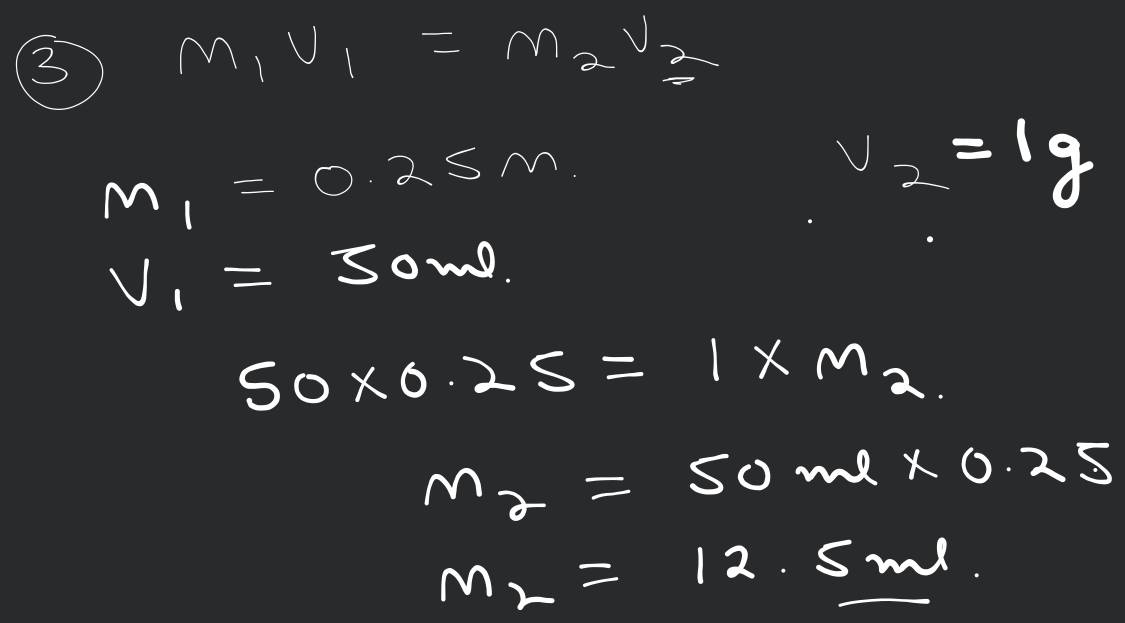 ③ M₁V₁ = M₂V₂
V₂ = 1g
M₁ = 0.25M.
V₁ = 50ml.
50×0.25 = 1×M₂.
M₂ = 50ml×0.25
M₂ = 12.5ml.